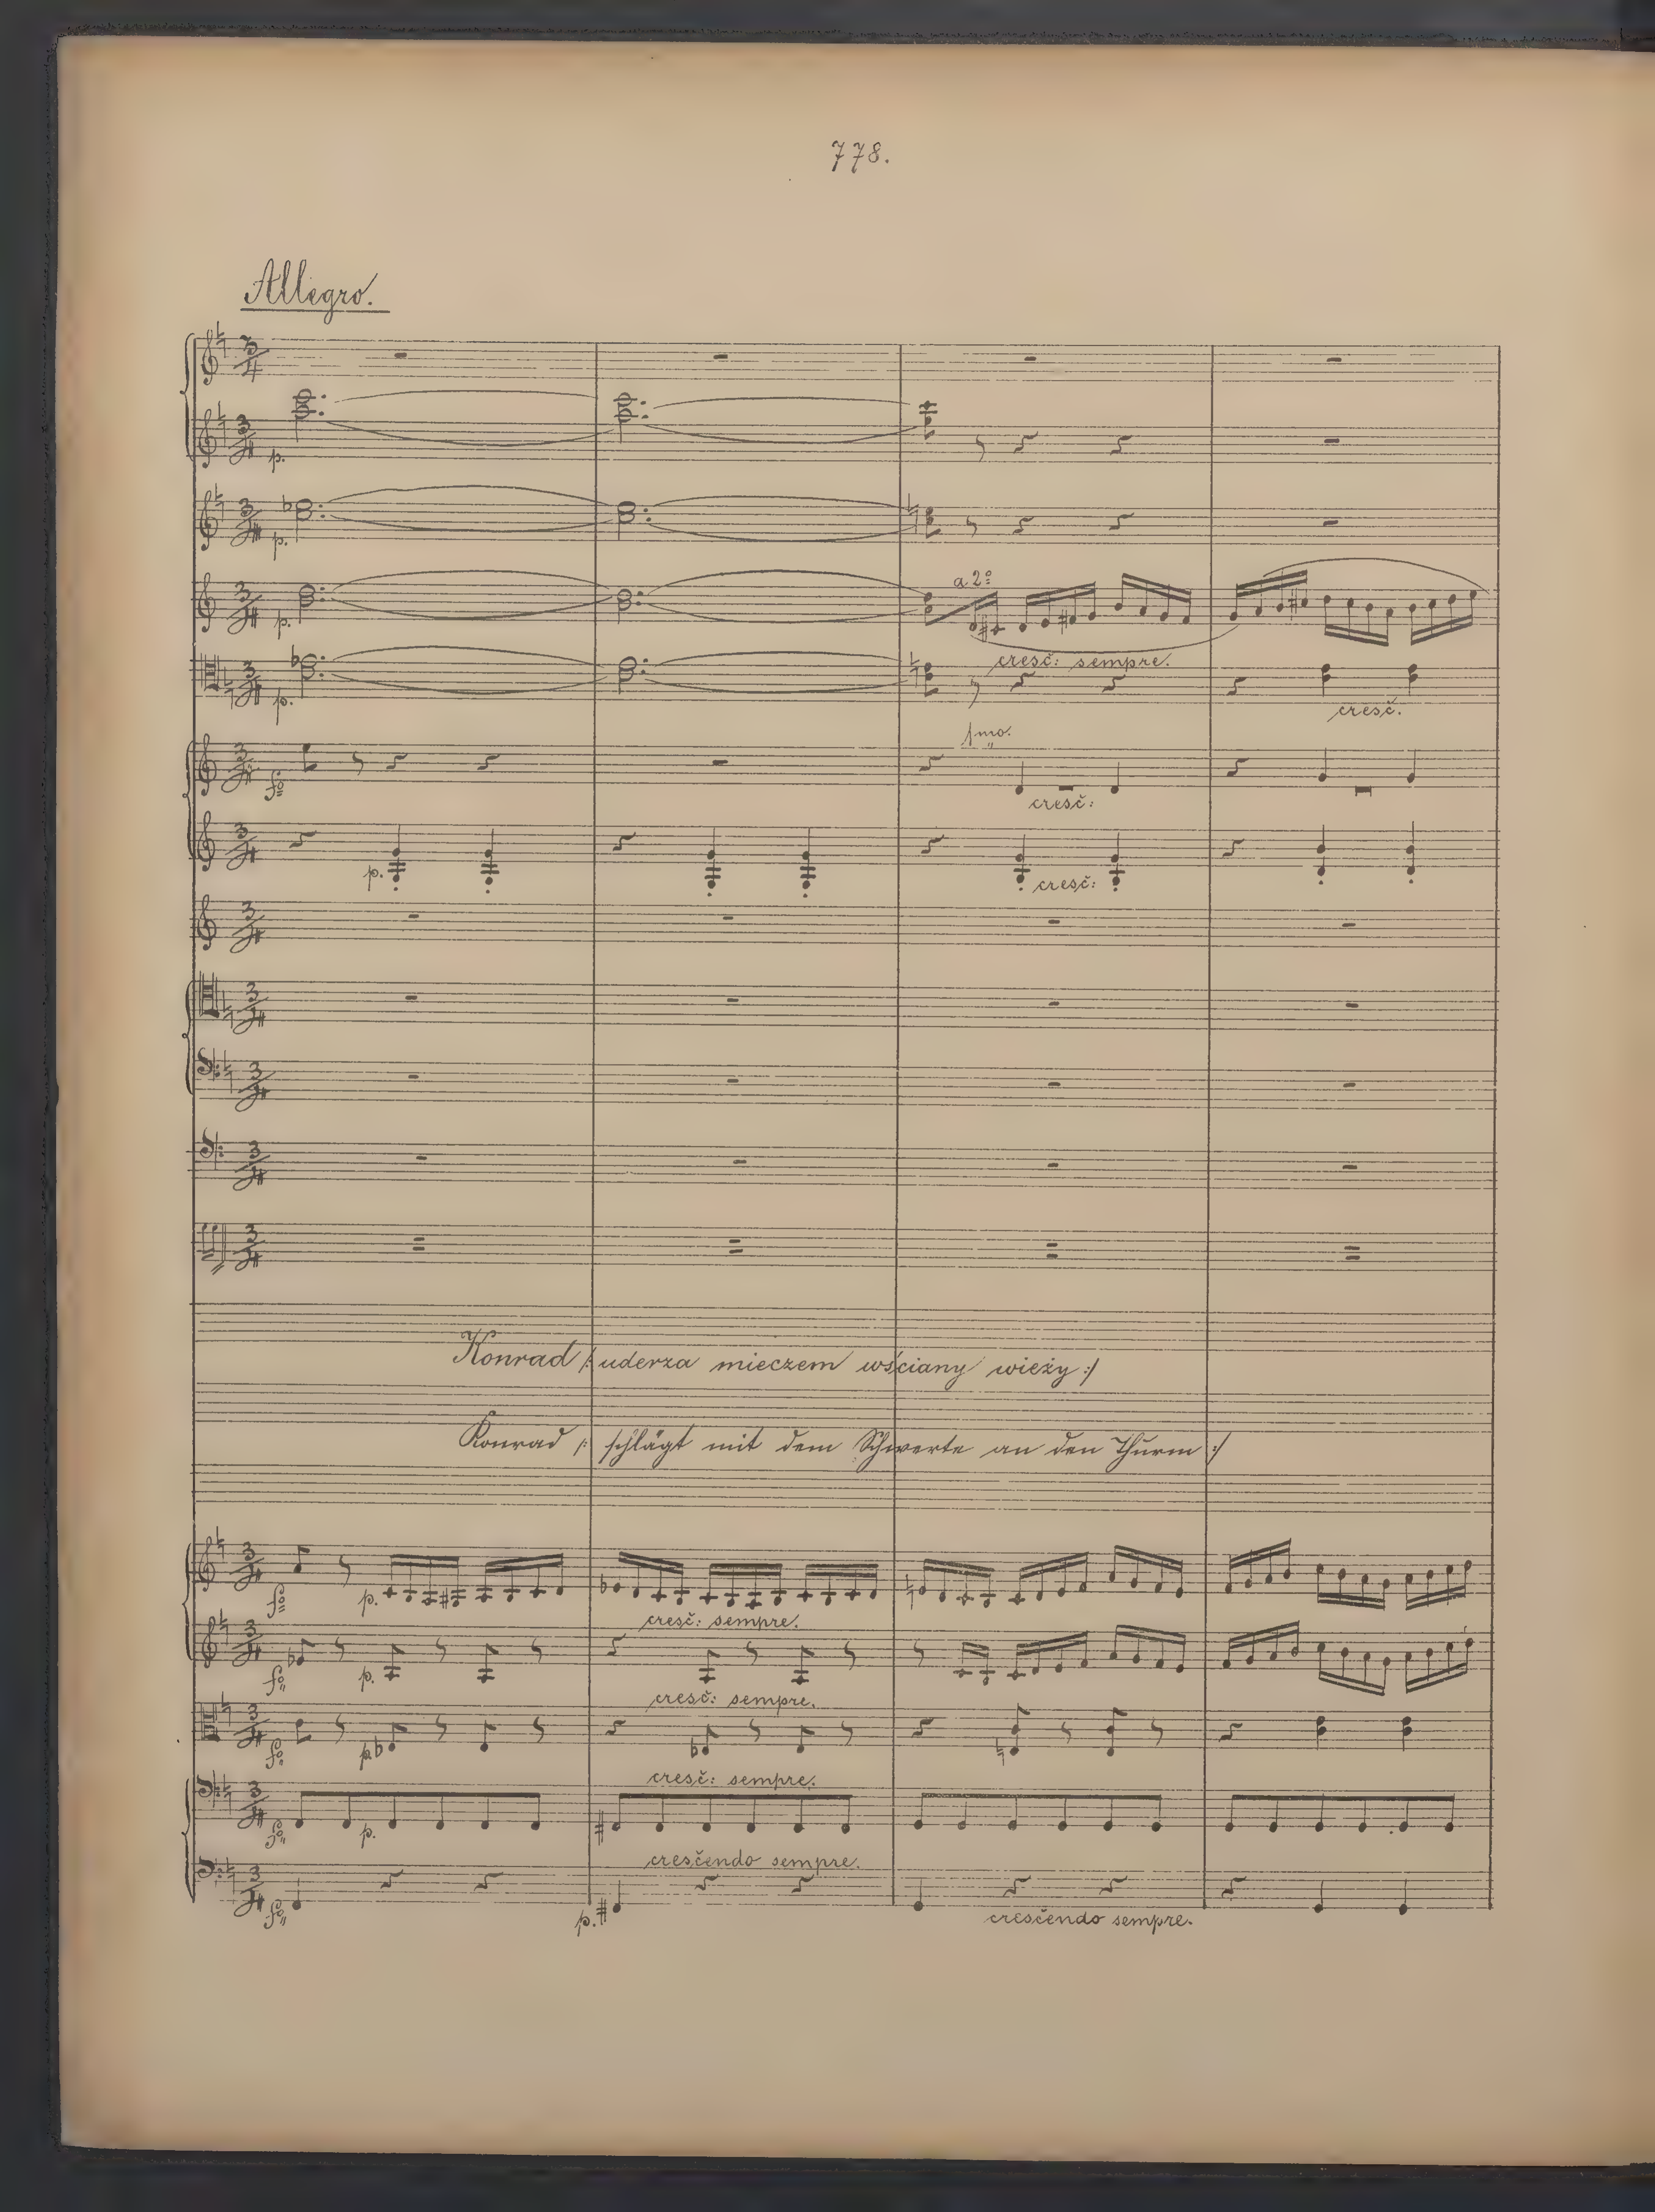 778.
Allegro.
p.
p.
a 2º
p.
cresč: sempre.
p.
cresč.
1mo.
fo
cresč:
p.
cresč:
Konrad /: uderza mieczem wściany wieży :/
Konrad /: schlägt mit dem Schwerte an den Thurm :/
fo p.
cresč: sempre.
fo p.
cresč: sempre.
fo p.
cresč: sempre.
fo p.
cresčendo sempre.
fo p.
cresčendo sempre.